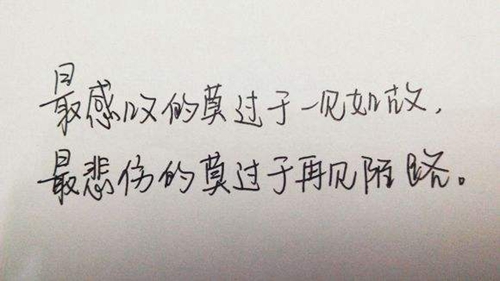 最感叹的莫过于一见如故,
最悲伤的莫过于再见陌路。